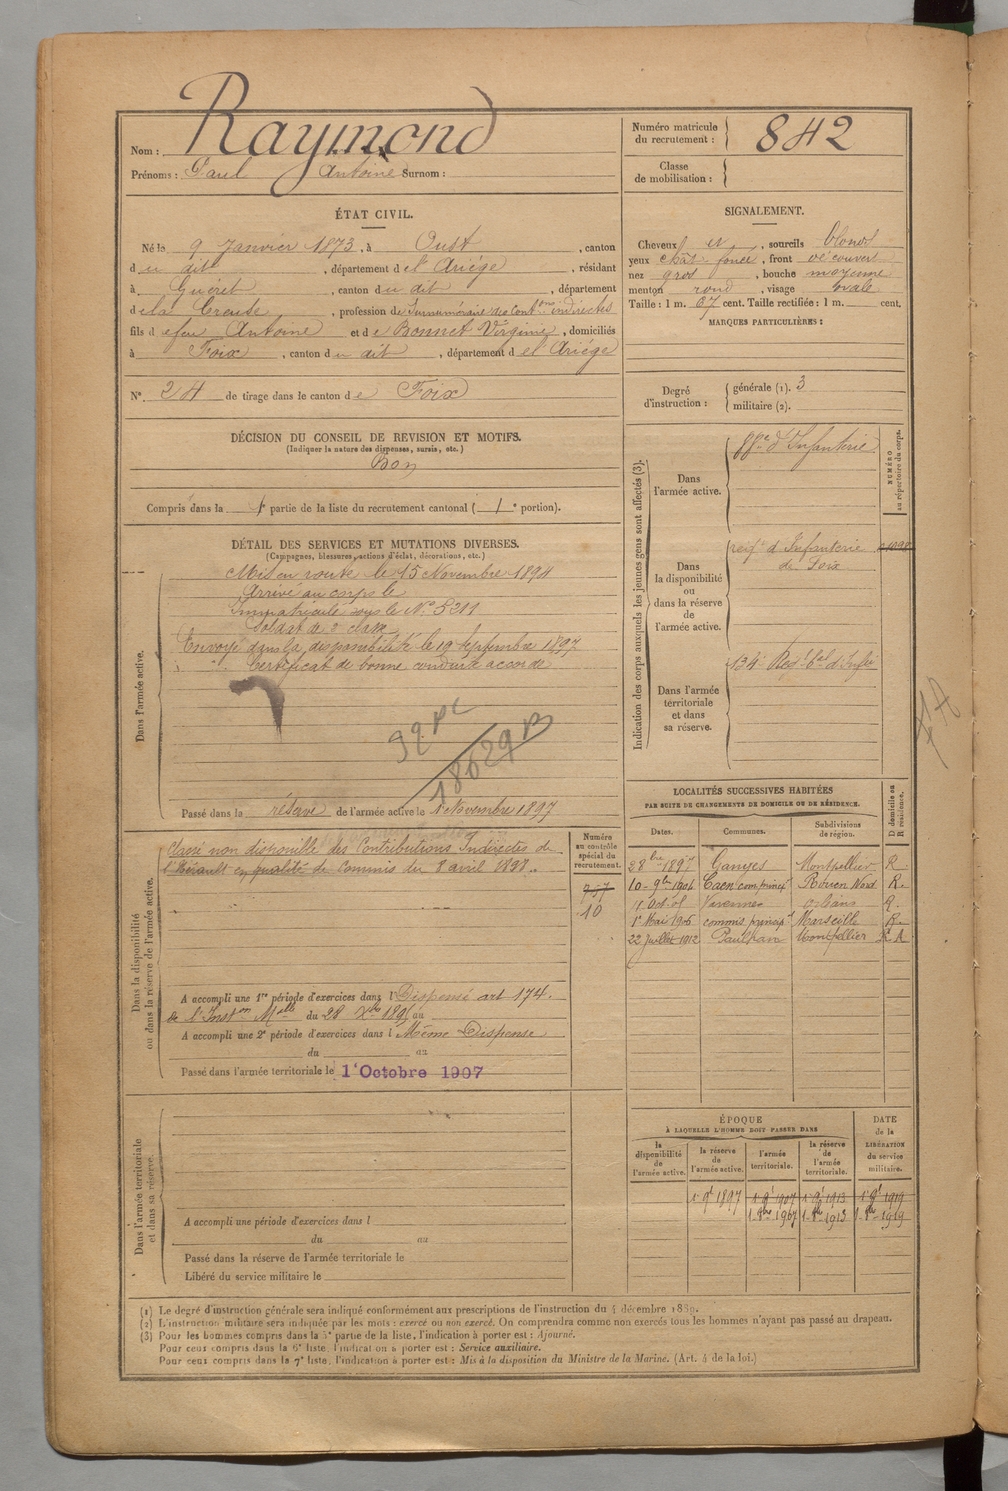 Nom : Raymond
Prénoms : Paul Antoine Surnom :
Numéro matricule du recrutement : 842
Classe de mobilisation :
ÉTAT CIVIL.
Né le 9 Janvier 1873, à Oust, canton
du dit, département de l'Ariège, résidant
à Guéret, canton du dit, département
de la Creuse, profession de Surnuméraire des Contons indirectes
fils de feu Antoine et de Bonnet Virginie, domiciliés
à Foix, canton du dit, département de l'Ariége
N° 24 de tirage dans le canton de Foix
SIGNALEMENT.
Cheveux et, sourcils blonds
yeux chât. foncé, front découvert
nez gros, bouche moyenne
menton rond, visage ovale
Taille : 1 m. 67 cent. Taille rectifiée : 1 m. cent.
MARQUES PARTICULIÈRES :
Degré d'instruction : générale (1). 3
militaire (2).
DÉCISION DU CONSEIL DE REVISION ET MOTIFS.
(Indiquer la nature des dispenses, sursis, etc.)
Bon
Compris dans la 1e partie de la liste du recrutement cantonal (1e portion).
DÉTAIL DES SERVICES ET MUTATIONS DIVERSES.
(Campagnes, blessures, actions d'éclat, décorations, etc.)
Dans l'armée active.
Mis en route le 15 Novembre 1894
Arrivé au corps le
Immatriculé sous le N° 5211
Soldat de 2e classe
Envoyé dans la disponibilité le 19 septembre 1897
Certificat de bonne conduite accordé
18629 B
Passé dans la réserve de l'armée active le 1 Novembre 1897
Indication des corps auxquels les jeunes gens sont affectés (3).
NUMÉRO au répertoire du corps.
Dans l'armée active.
88e d'Infanterie
Dans la disponibilité ou dans la réserve de l'armée active.
regt d'Infanterie
de Foix
Dans l'armée territoriale et dans sa réserve.
134e Regt tal d'Infie
Dans la disponibilité ou dans la réserve de l'armée active.
Classé non disponible des Contributions Indirectes de
l'Hérault en qualité de Commis du 8 avril 1898.
Numéro au contrôle spécial du recrutement.
757
10
A accompli une 1re période d'exercices dans l Dispensé art 174.
de l'Inston Melle du 28 Xbre 189 au
A accompli une 2e période d'exercices dans l Même Dispense
du au
Passé dans l'armée territoriale le 1er Octobre 1907
LOCALITÉS SUCCESSIVES HABITÉES
PAR SUITE DE CHANGEMENTS DE DOMICILE OU DE RÉSIDENCE.
Dates. Communes. Subdivisions de région. D domicile ou R résidence.
28 bre 1897 Ganges Montpellier R
10- 9bre Caen com princip Rouen Nord R.
Varennes Orléans R.
1er Mai 1906 commis princip Marseille R.
22 juillet 1912 Paulhan Montpellier
Dans l'armée territoriale et dans sa réserve.
A accompli une période d'exercices dans l
du au
Passé dans la réserve de l'armée territoriale le
Libéré du service militaire le
ÉPOQUE
À LAQUELLE L'HOMME DOIT PASSER DANS
la disponibilité de l'armée active. la réserve de l'armée active. l'armée territoriale. la réserve de l'armée territoriale. DATE de la LIBÉRATION du service militaire.
1 9bre 1897 1 9bre 1907 1 9bre 1913 1 9bre 1919
1 8bre 1907 1 8bre 1913 1 8bre 1919
(1) Le degré d'instruction générale sera indiqué conformément aux prescriptions de l'instruction du 4 décembre 1889.
(2) L'instruction militaire sera indiquée par les mots : exercé ou non exercé. On comprendra comme non exercés tous les hommes n'ayant pas passé au drapeau.
(3) Pour les hommes compris dans la 5e partie de la liste, l'indication à porter est : Ajourné.
Pour ceux compris dans la 6e liste, l'indication à porter est : Service auxiliaire.
Pour ceux compris dans la 7e liste, l'indication à porter est : Mis à la disposition du Ministre de la Marine. (Art. 4 de la loi.)